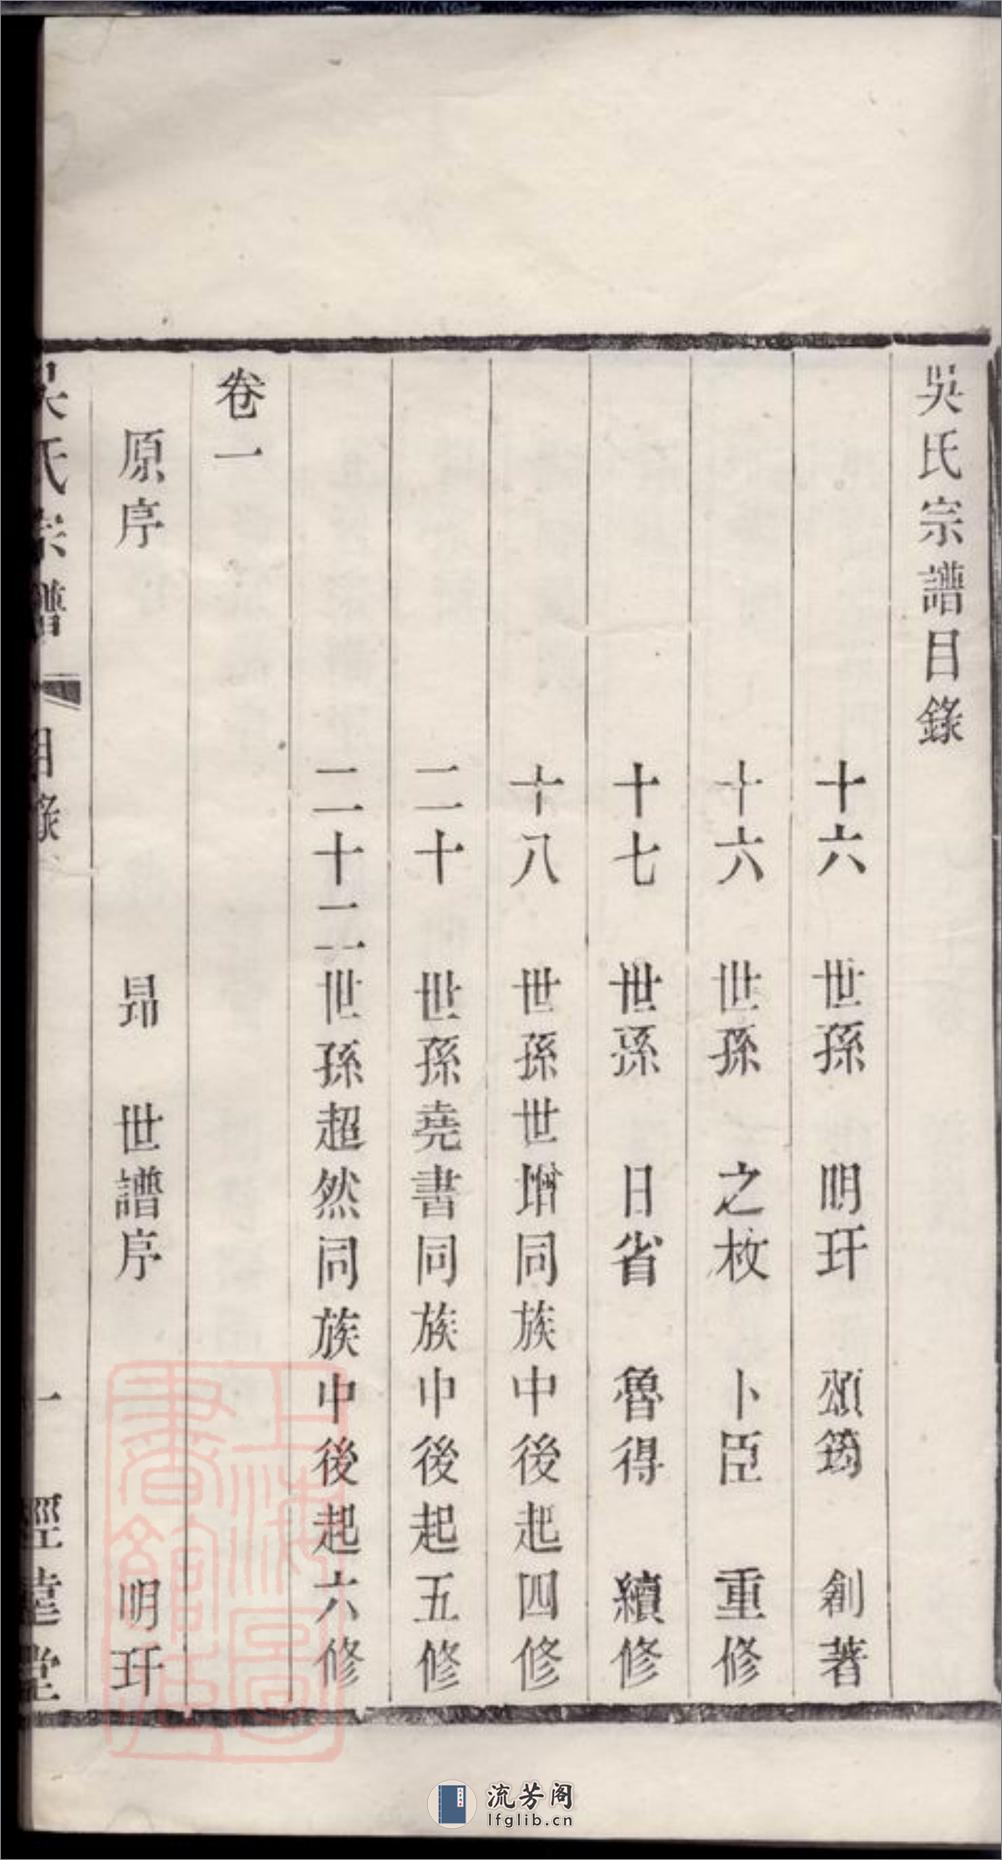 吳氏宗譜目錄
十六 世孫 明玕 頌筠 創著
十六 世孫 之枚 卜臣 重修
十七 世孫 日省 魯得 續修
十八 世孫世增同族中後起四修
二十 世孫堯書同族中後起五修
二十二世孫超然同族中後起六修
卷一
原序 昻 世譜序 明玕
吳氏宗譜 目錄 一 經達堂
上海圖書館藏
流芳阁
lfglib.cn